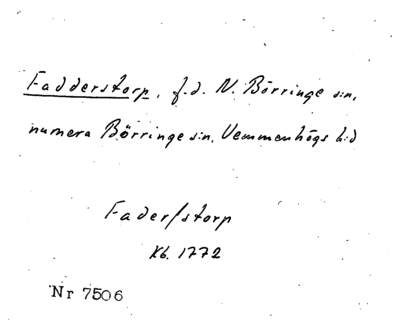 Fadderstorp, f.d. N. Börringe sn,
numera Börringe sn, Vemmenhögs hd
Faderstorp
Kb. 1772
Nr 7506